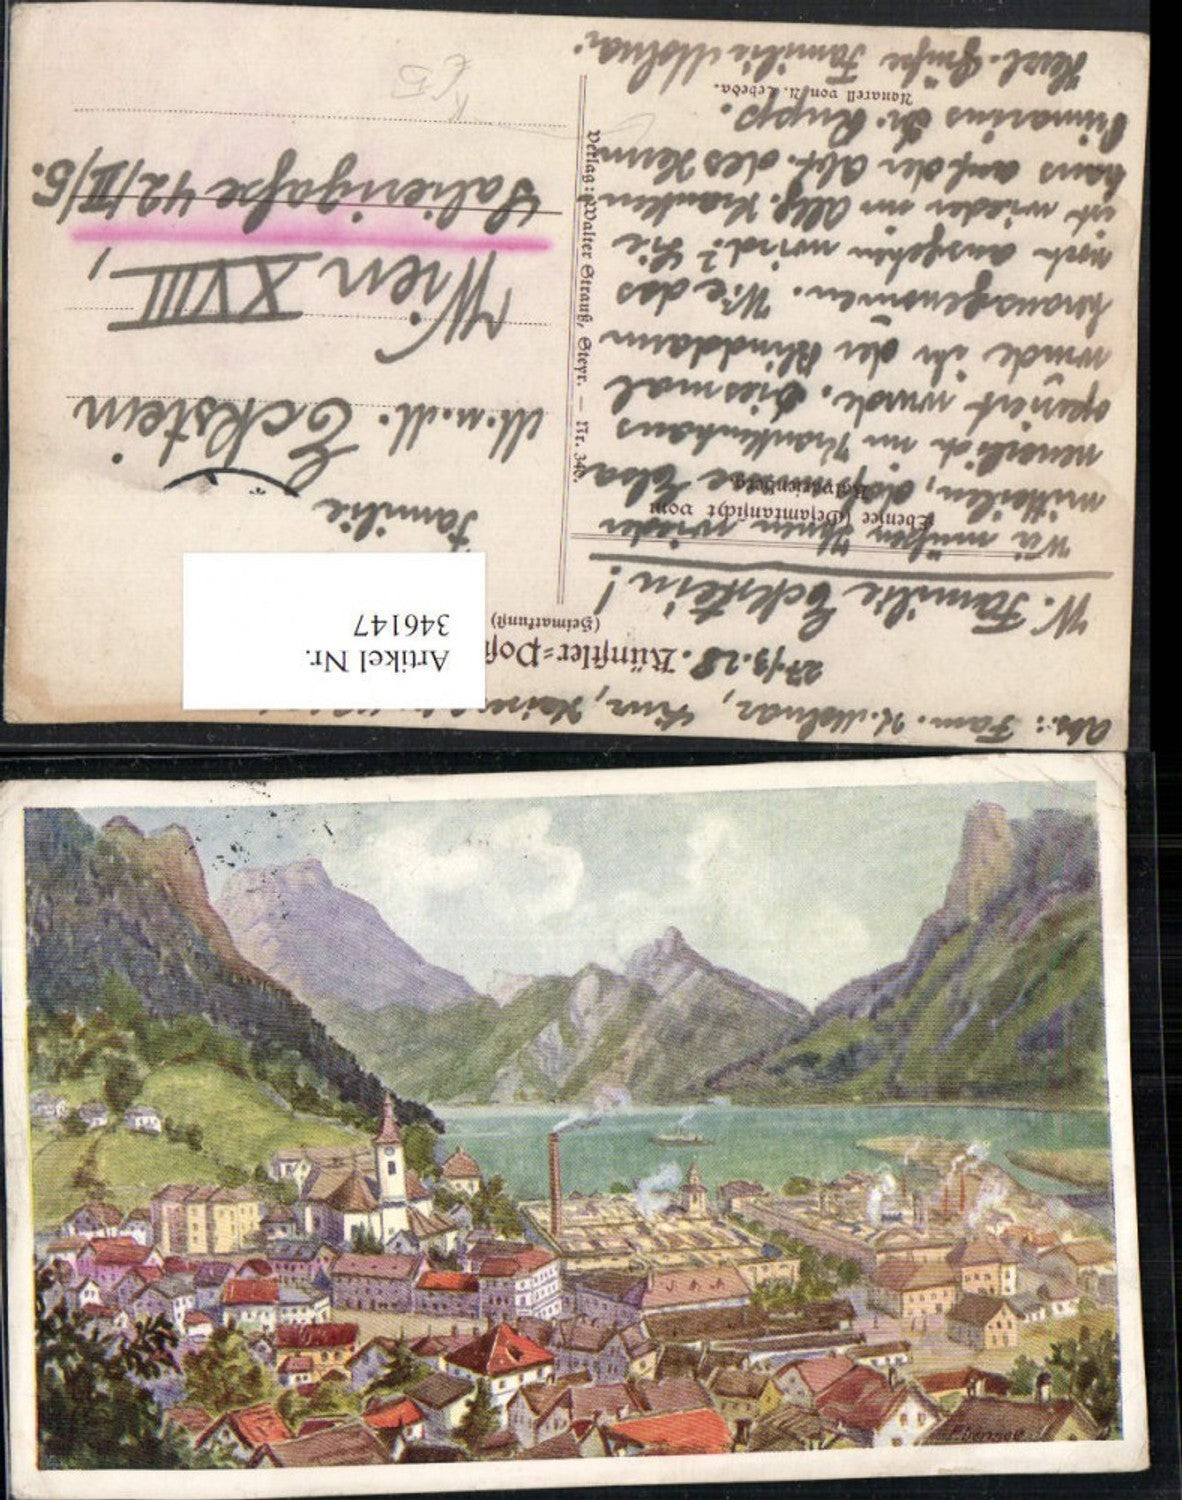 Abs.: Fam. K. Molnar,
27./3.28.
Künstler=Pos
(Heimatkunst)
W. Familie Eckstein!
Wir müßen Ihnen wieder
mitteilen, daß
neuerlich im Krankenhaus
operiert wurde. Diesmal
wurde ihr der Blinddarm
herausgenommen. Wie das
noch ausgehen wird? Sie
ist wieder im Allg. Kranken
haus auf der Abt. des Herrn
Primarius Dr. Rupp.
Herzl. Grüße Familie Molnar
Ebensee (Gesamtansicht vom
Kalvarienberg.
Aquarell von A. Lebeda.
Verlag: Walter Strauß, Steyr. — Nr. 340.
Familie
Eckstein
Wien XVIII,
Salierigaße 42/II/5.
Artikel Nr.
346147